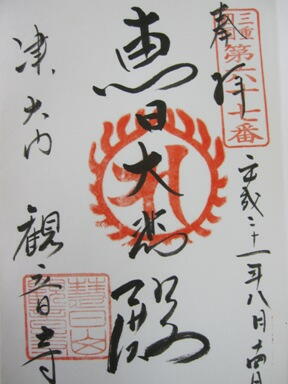 三重
四国
第六十七番
奉拝
平成二十一年八月十四日
恵日大悲殿
津大門
観音寺